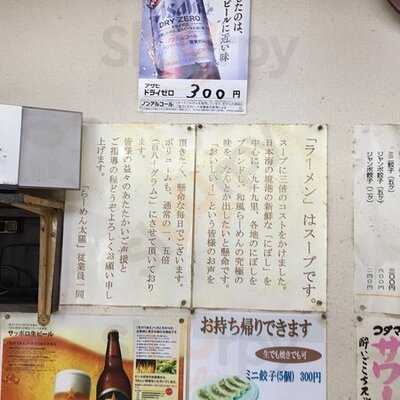 きたのは、
ビールに近い味
Asahi
DRY ZERO
ノンアルコール
アサヒ
ドライゼロ
300円
ノンアルコール
「ラーメン」はスープです。
スープに三倍のコストをかけました。
日本海の堺港の新鮮な「にぼし」を
中心に、九十九里、各地のにぼしを
ブレンドし、和風らーめんの究極の
味を、なんとか出したいと懸命です。
「おいしい！」という皆様のお声を
頂きたく懸命な毎日でございます。
ボリュームも、通常の一、五倍
（百八十グラム）にさせて頂いており
ます。
皆様の益々のあたたかいご声援と
ご指導の程どうぞよろしくお願い申し
上げます。
「らーめん太陽」従業員一同
ミニ餃子（五ケ）
ジャンボ餃子
ジャンボ餃子
サッポロ生ビール
お持ち帰りできます
生でも焼きでも可
ミニ餃子(5個) 300円
コダマ
サワー
酔いごこち